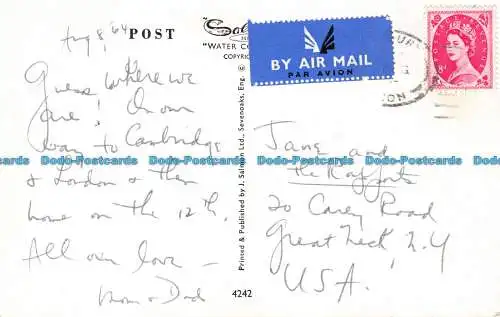 Aug 8, 64
POST
Sal
"WATER CO
COPYRIG
BY AIR MAIL
PAR AVION
8d
Guess where we
are! On our
way to Cambridge
& London & then
home on the 12th.
All our love —
Mom & Dad
Printed & Published by J. Salmon Ltd., Sevenoaks, Eng. ©
4242
Jane and
the
20 Carey Road
Great Neck, N.Y
U.S.A.
Dodo-Postcards Dodo-Postcards Dodo-Postcards Dodo-Postcards